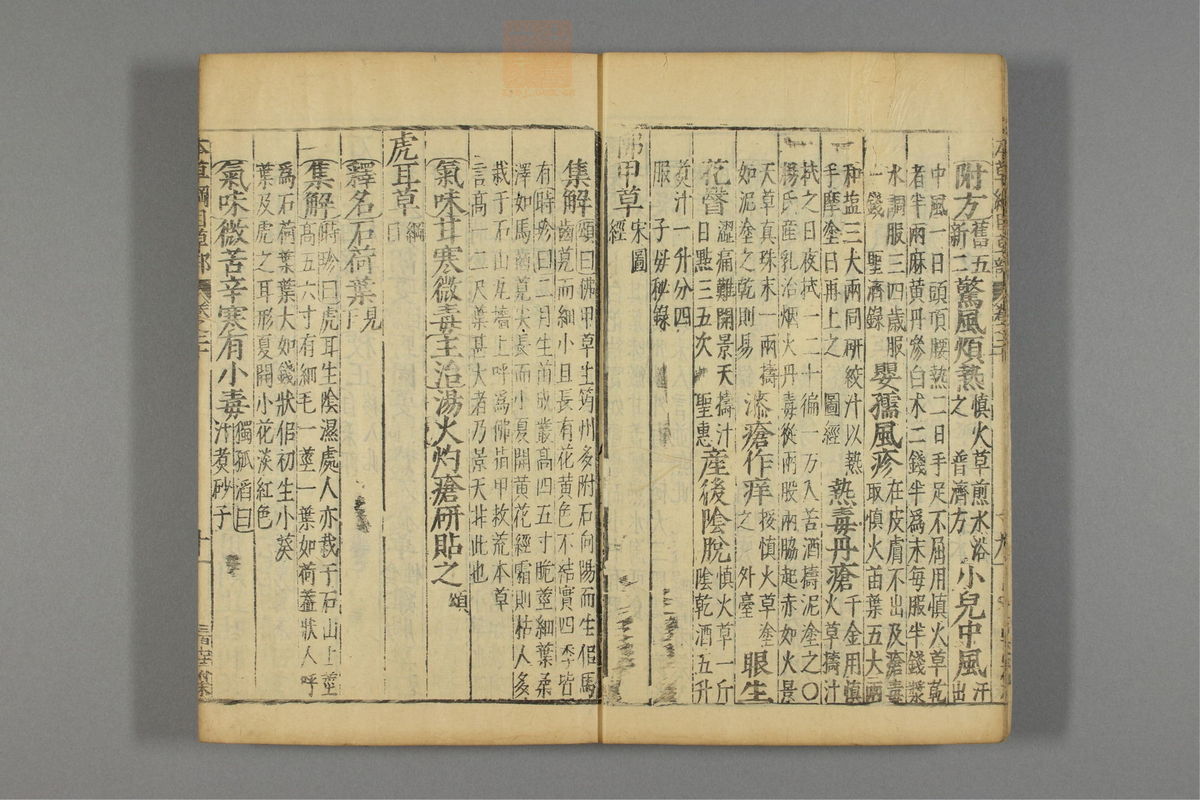 附方舊五新二驚風煩熱慎火草煎水浴之普濟方小兒中風汗出
中風一日頭項腰熱二日手足不屈用慎火草乾者半兩麻黄丹參白术二錢半爲末每服半錢漿
水調服三四歲服一錢聖濟錄嬰孺風疹在皮膚不出及瘡毒取慎火苗葉五大兩
和塩三大兩同研絞汁以熱手摩塗日再上之圖經熱毒丹瘡千金用慎火草擣汁
拭之日夜拭一二十徧一方入苦酒擣泥塗之○楊氏産乳治烟火丹毒從兩股兩脇起赤如火景
天草真珠末一兩擣如泥塗之乾則易漆瘡作痒挼慎火草塗之外臺眼生
花瞖澀痛難開景天擣汁日點三五次聖惠産後陰脫慎火草一斤陰乾酒五升
煑汁一升分四服子母秘錄
佛甲草宋圖經
集解頌曰佛甲草生筠州多附石向陽而生佀馬齒莧而細小且長有花黄色不結實四季皆
有時珍曰二月生苗成叢高四五寸脆莖細葉柔澤如馬齒莧尖長而小夏開黄花經霜則枯人多
栽于石山瓦墻上呼爲佛指甲救荒本草言高一二尺葉甚大者乃景天非此也
氣味甘寒微毒主治湯火灼瘡研貼之頌
虎耳草綱目
釋名石荷葉見于
集解時珍曰虎耳生陰濕處人亦栽于石山上莖高五六寸有細毛一莖一葉如荷蓋狀人呼
爲石荷葉葉大如錢狀佀初生小葵葉及虎之耳形夏開小花淡紅色
氣味微苦辛寒有小毒獨孤滔曰汁煑砂子
本草綱目草部 卷之二十 十一